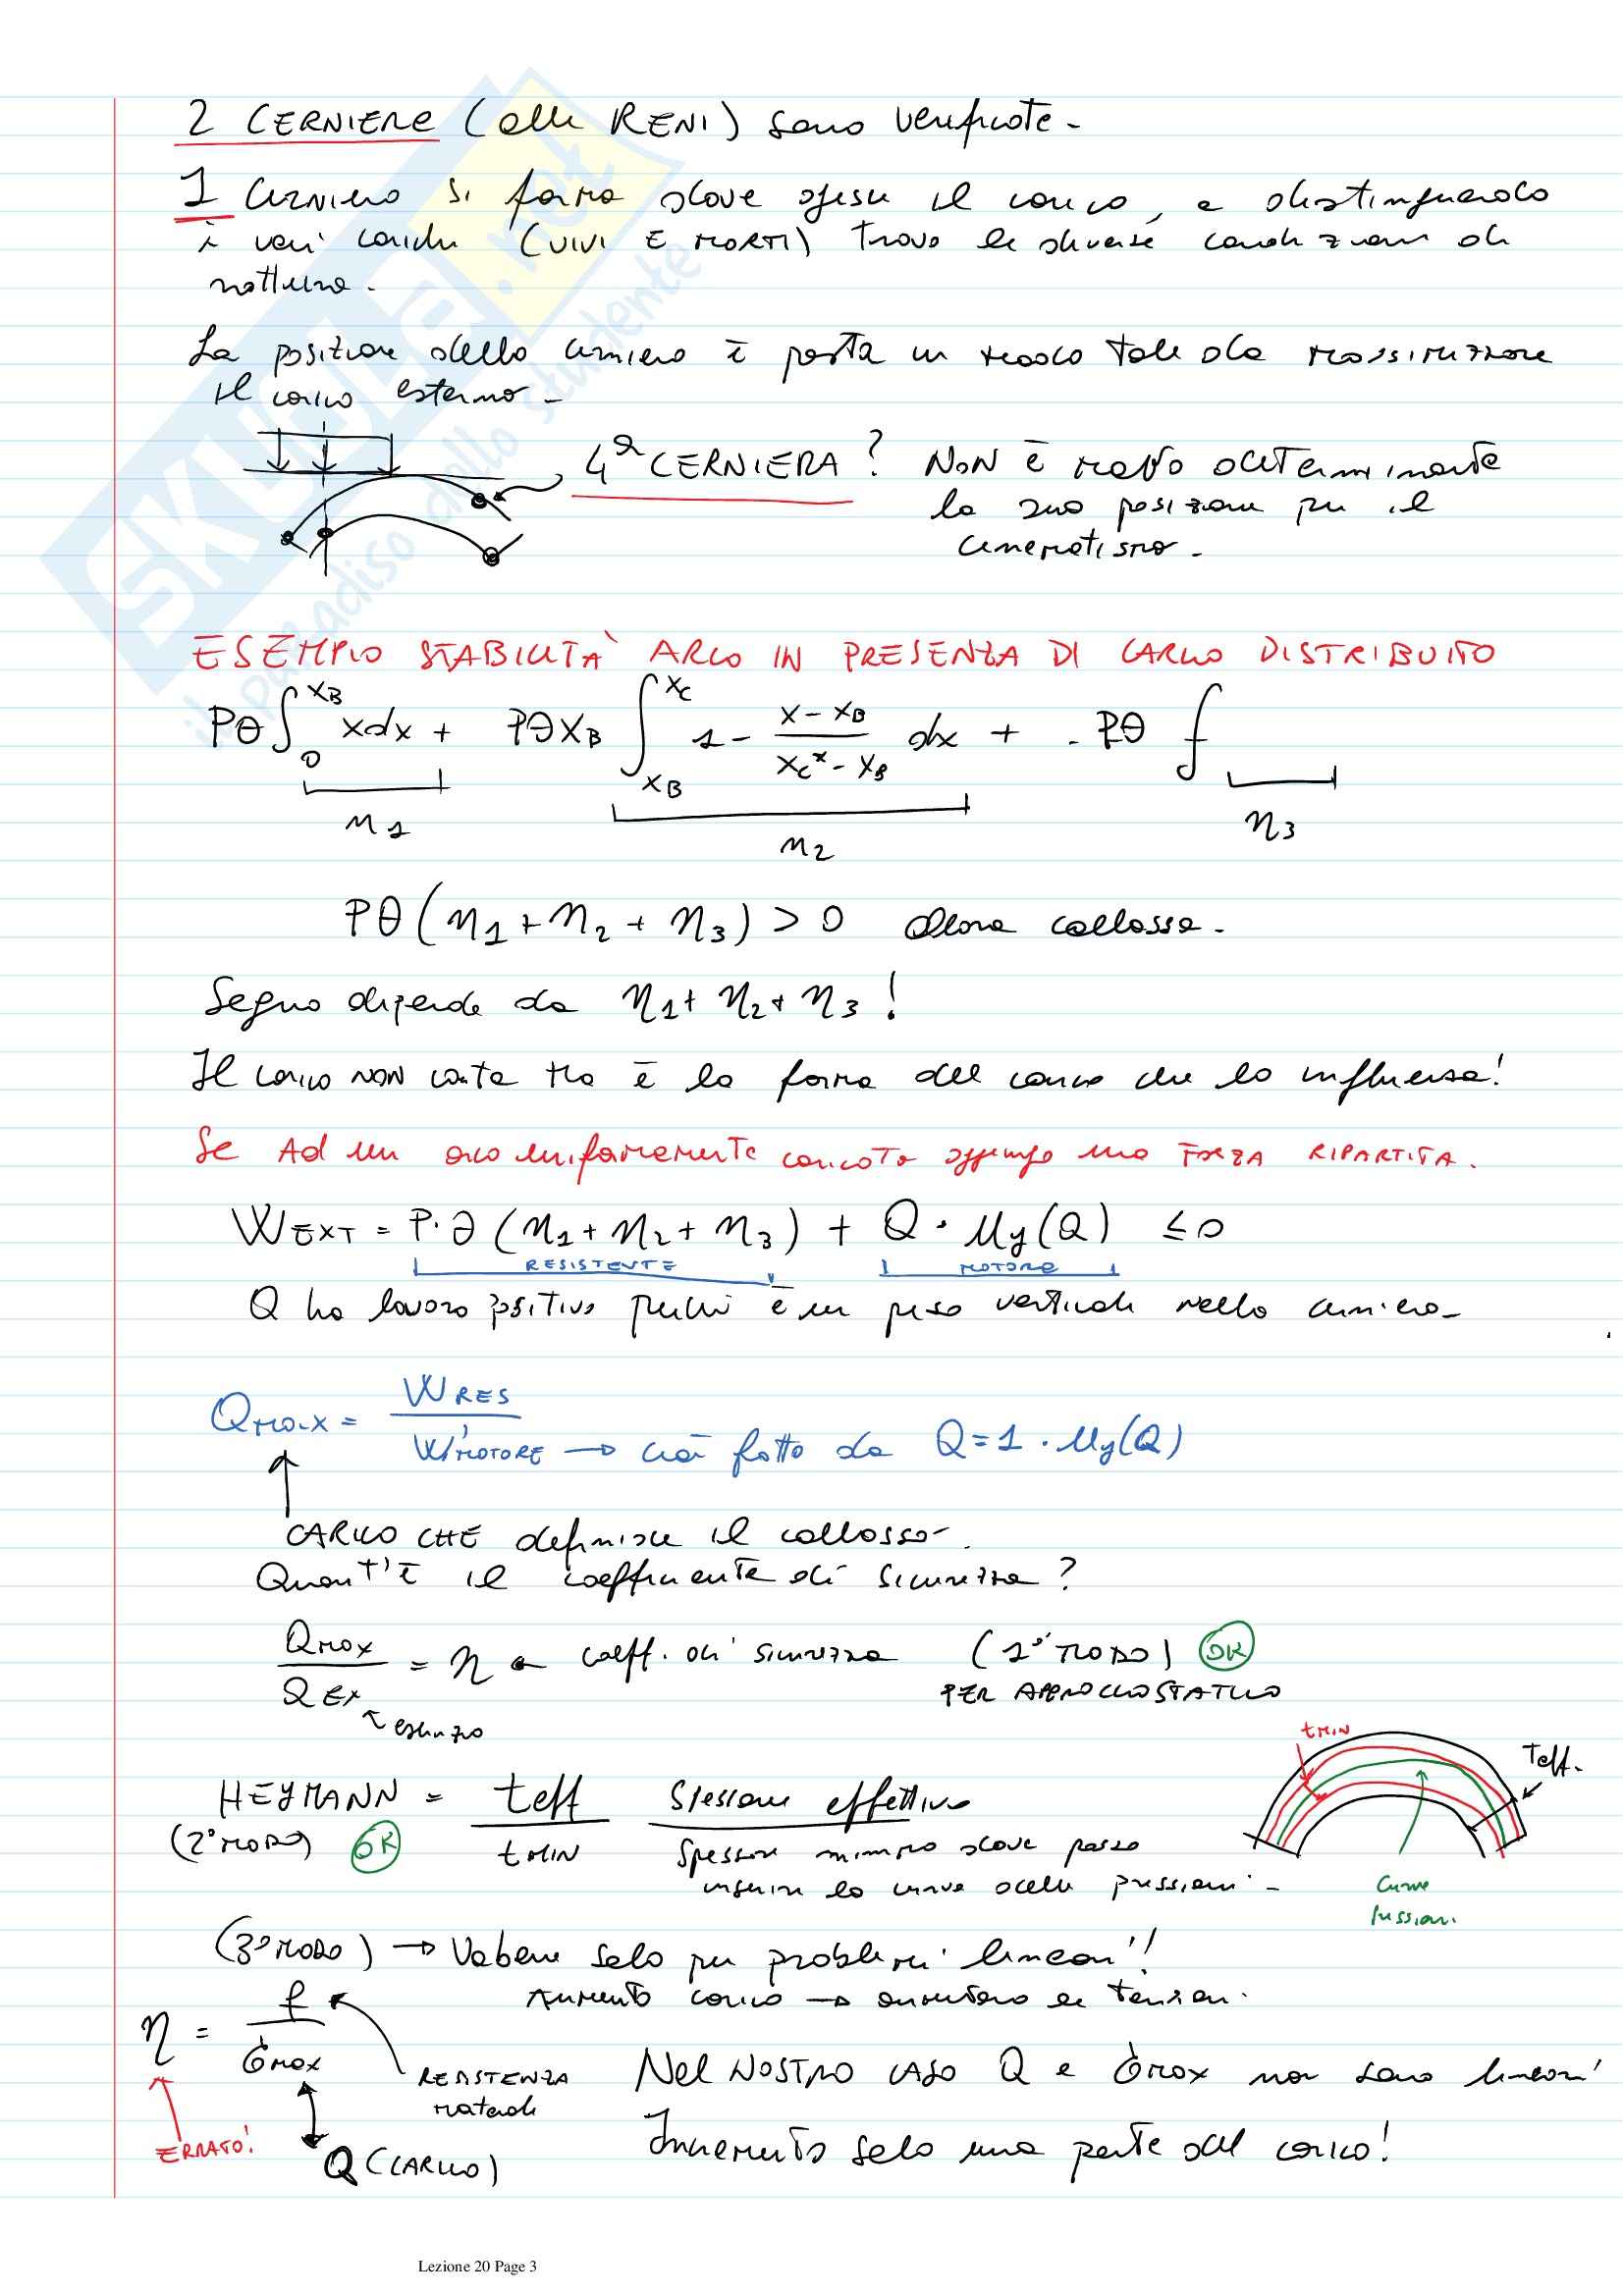 2 CERNIERE (alle RENI) sono verificate.
1 cerniera si forma dove agisce il carico, e distinguendo
i vari carichi (VIVI E MORTI) trovo le diverse condizioni di
rottura.
La posizione della cerniera è posta in modo tale da massimizzare
il carico esterno.
4ª CERNIERA? NON è molto determinante
la sua posizione per il
cinematismo.
ESEMPIO STABILITÀ ARCO IN PRESENZA DI CARICO DISTRIBUITO
Pθ ∫₀^{x_B} x dx + Pθ x_B ∫_{x_B}^{x_C} 1 - (x - x_B)/(x_C^x - x_B) dx + - Pθ ∫
η1 η2 η3
Pθ (η1 + η2 + η3) > 0 allora collassa.
Segno dipende da η1 + η2 + η3!
Il carico NON conta ma è la forma del carico che lo influenza!
Se Ad un arco uniformemente caricato aggiungo una FORZA RIPARTITA.
W_EXT = P·θ (η1 + η2 + η3) + Q · μy(Q) ≤ 0
RESISTENTE MOTORE
Q ha lavoro positivo perché è un peso verticale nella cerniera.
Qmax = W_RES / W'MOTORE → cioè fatto da Q = 1 · μy(Q)
CARICO CHE definisce il collasso.
Quant'è il coefficiente di sicurezza?
Qmax / Q_EX = η ← coeff. di sicurezza (1° MODO) OK
esercizio PER APPROCCIO STATICO
HEYMANN = teff / tMIN Spessore effettivo
(2° MODO) OK Spessore minimo dove posso
inserire la curva delle pressioni.
tMIN Teff.
Curve
Pressioni.
(3° MODO) → Va bene solo per problemi lineari!
Aumento carico → aumentano le tensioni.
η = f / σmax
RESISTENZA
materiale
Nel NOSTRO CASO Q e σmax non sono lineari
ERRATO!
Q (CARICO)
Incremento solo una parte del carico!
Lezione 20 Page 3
SKUOLA.net
il paradiso dello studente